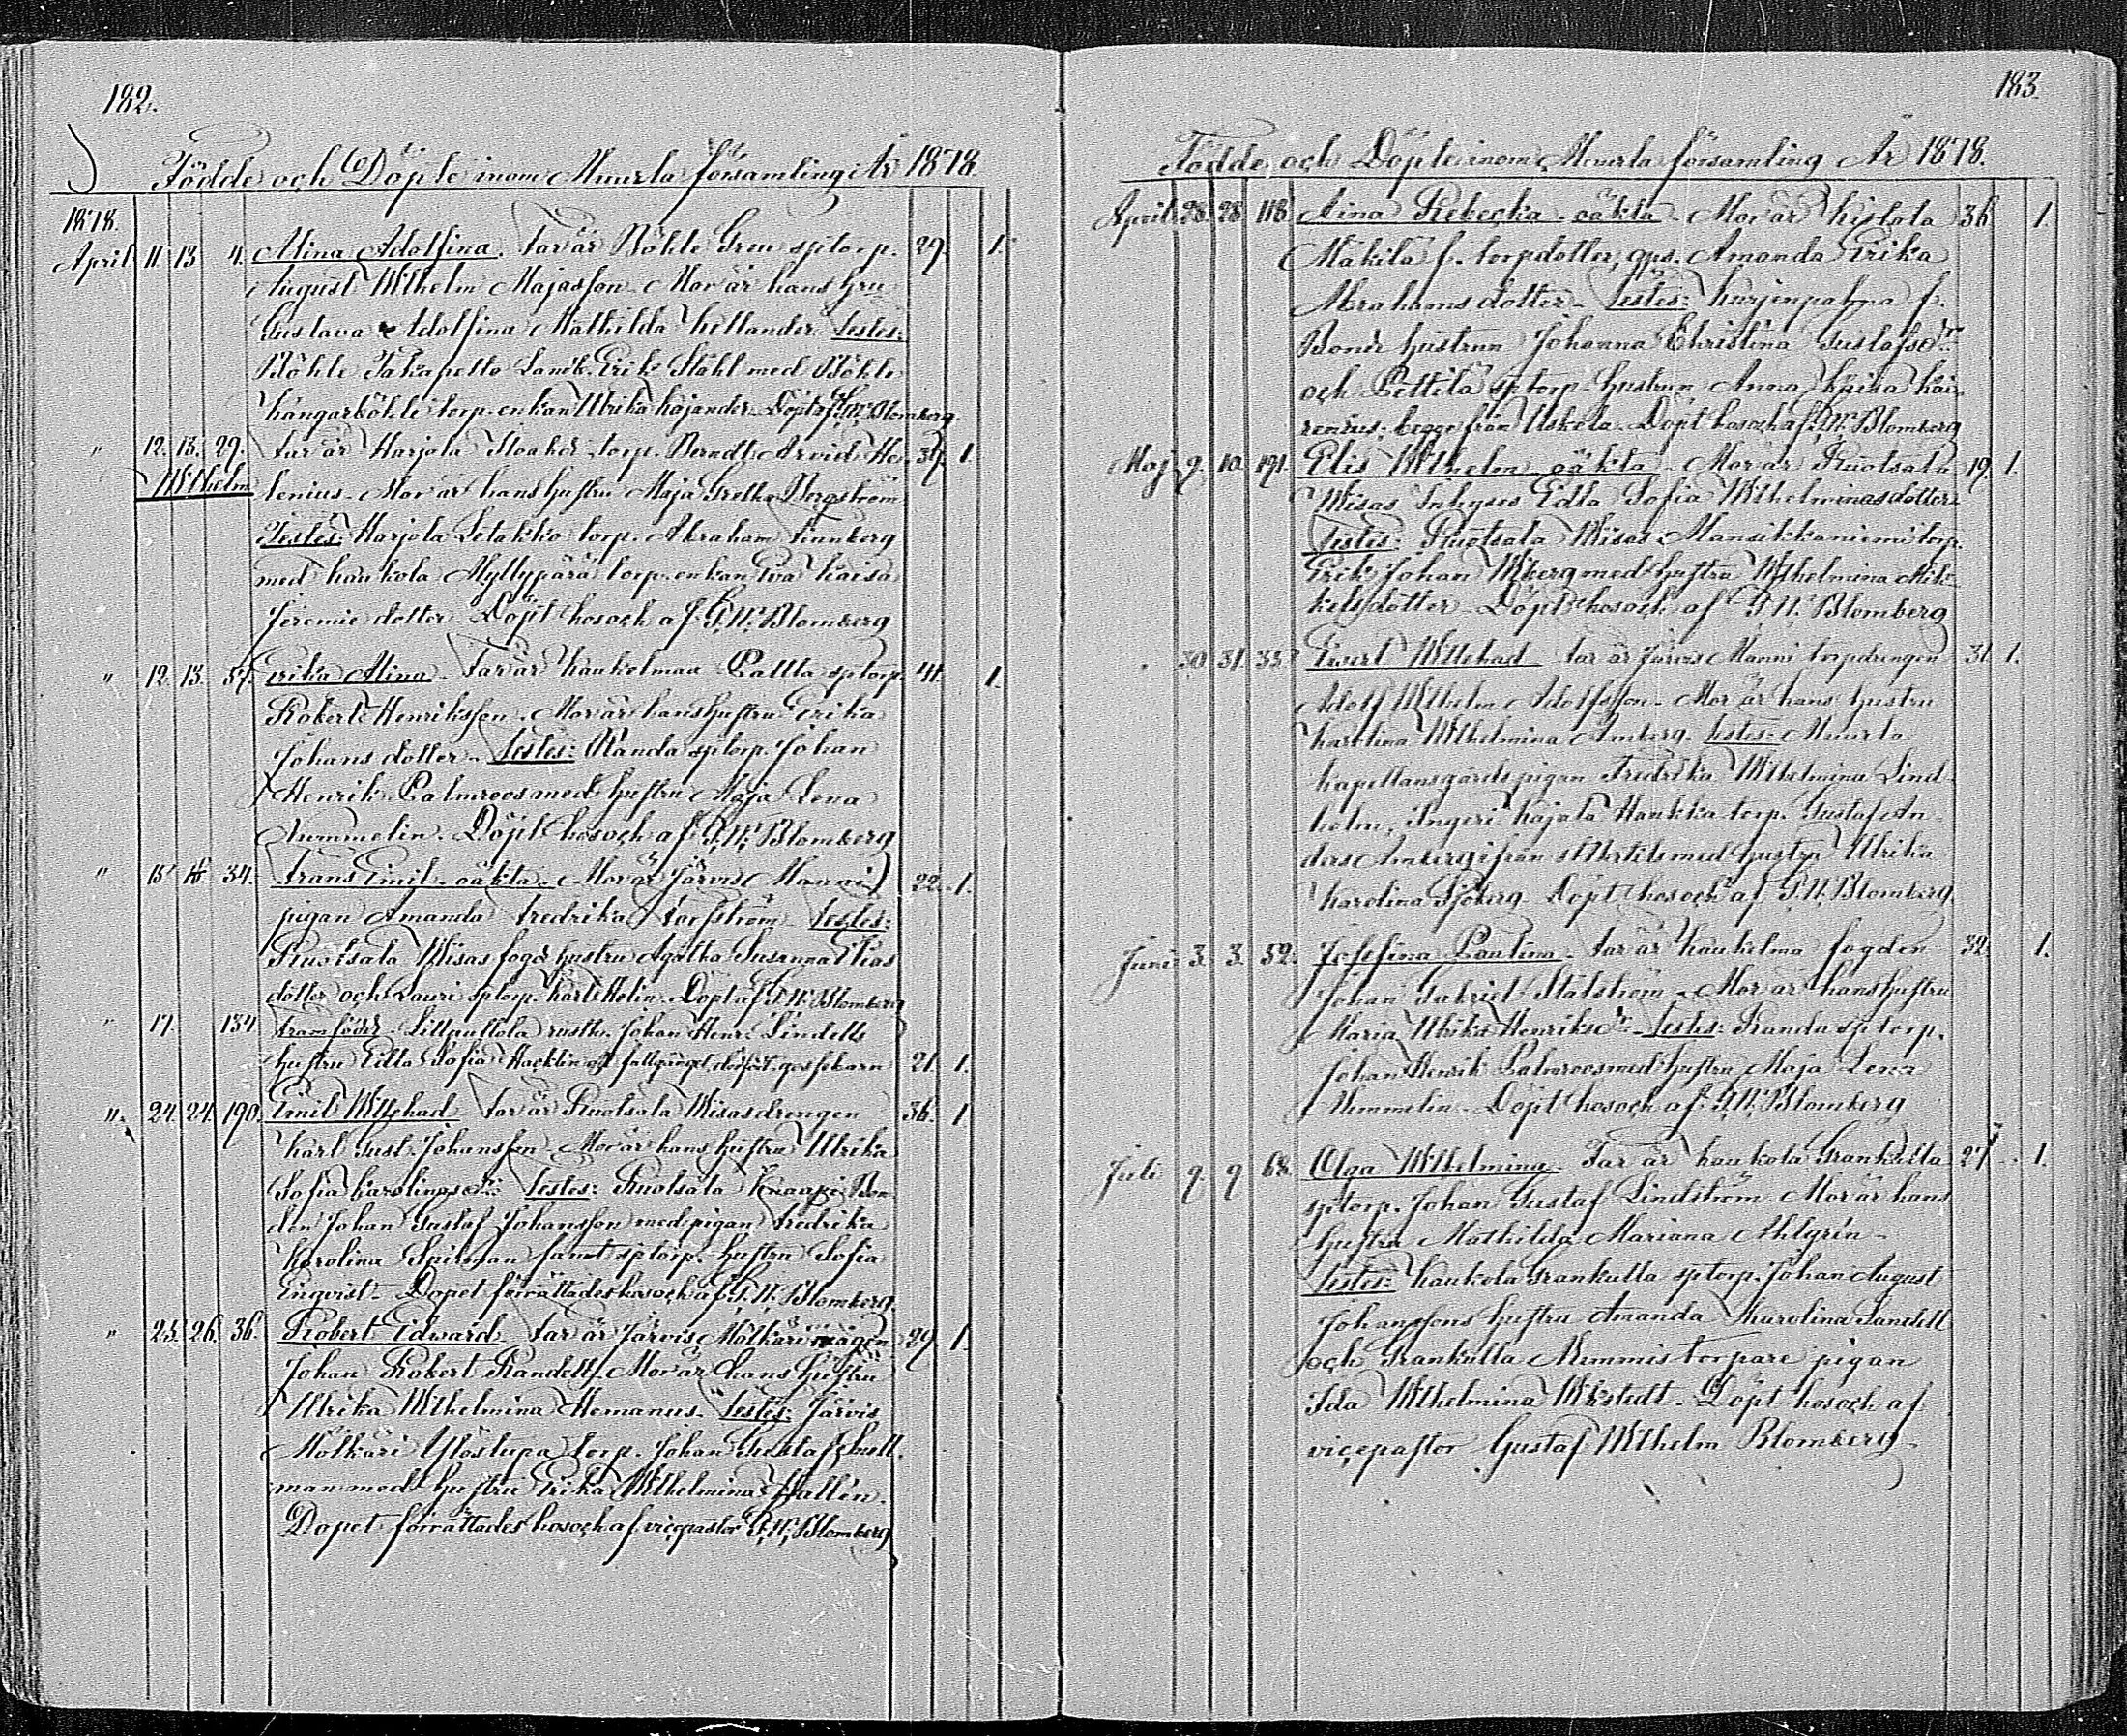 182.
Födde och Döpte inom Muurla församling År 1878.
1878.
April 11. 13 4. Alina Adolfina. Far är Böhle Gren sptorp. 29. 1.
August Wilhelm Majasson. Mor är hans hru
Gustava Adolfina Mathilda Hellander. Testes:
Böhle Takapelto Landb. Erik Ståhl med Böhle
Kångarböhle torp. enkan Ulrika Kajander. Döpt af G. W. Blomberg.
" 12. 13. 29. Far är Harjola torp. Berndt Arvid He- 37. 1.
Wilhelm lenius. Mor är hans hustru Maja Greta Bergström
Testes: Harjola Letakko torp. Abraham Finnberg
med Haukola Myllyperä torp. enkan Eva Kaisa
Jeremie dotter. Döpt hos och af G. W. Blomberg
" 12. 13. 57. Erika Alina. Far är Kaukelmaa Pallta sptorp. 41. 1.
Robert Henriksson. Mor är hans hustru Erika
Johans dotter. Testes: Randa sptorp. Johan
Henrik Palmroos med hustru Maja Lena
Nummelin. Döpt hos och af G. W. Blomberg
" 15. 34. Frans Emil. oäkta. Mor är Järvis Manni 22. 1.
pigan Amanda Fredrika Forsström. Testes:
Ruotsala Wisas fogd hustru Agatha Susanna Elias
dotter och Lauri sptorp. Karl Helin. Döpt af G. W. Blomberg
" 17. 134. Framfödde Johan Henr. Lindells
hustru Edla Sofia Hacklin gossebarn 21. 1.
" 24. 24. 190. Emil Willehad. Far är Ruotsala Wisas drengen 36. 1.
Karl Gust. Johansson. Mor är hans hustru Ulrika
Sofia Karolinasdr. Testes: Ruotsala Knaapi Bon-
den Johan Gustaf Johansson med pigan Fredrika
Karolina Spilman samt sptorp. hustru Sofia
Enqvist. Dopet förrättades hos och af G. W. Blomberg.
" 25. 26. 36. Robert Edward. Far är Järvis Mölkäri mågen 29. 1.
Johan Robert Randell. Mor är hans hustru
Ulrika Wilhelmina Hemanus. Testes: Järvis
Mölkäri Ylöstupa torp. Johan Gustaf Snell-
man med hustru Erika Wilhelmina Hallén.
Dopet förrättades hos och af vicepastor G. W. Blomberg
183.
Födde och Döpte inom Muurla församling År 1878.
April 28. 28. 118. Aina Rebecka. oäkta. Mor är Kistola 36 1.
Mäkilä f. torpdotter, qps. Amanda Erika
Abrahams dotter. Testes: Kurjenpahna f.
Bonde hustrun Johanna Christina Gustafsdr
och Pettilä sptorp. hustrun Anna Kaisa Kai-
renius, begge från Uskela. Döpt hos och af G. W. Blomberg
Maj 9. 10. 191. Elis Wilhelm. oäkta. Mor är Ruotsala 19. 1.
Wisas Inhyses Edla Sofia Wilhelminasdotter
Testes: Ruotsala Wisas Mansikkaniemi torp.
Erik Johan Wiberg med hustru Wilhelmina Mik-
kelsdotter. Döpt hos och af G. W. Blomberg
" 30. 31. 33. Evert Willehad. Far är Järvis Manni torpdrengen 31. 1.
Adolf Wilhelm Adolfsson. Mor är hans hustru
Karolina Wilhelmina Amberg. Testes: Muurla
Kapellansgårds pigan Fredrika Wilhelmina Lind-
holm, Ingeri Kajala Haukka torp. Gustaf An-
ders Amberg ifrån St Bertils med hustru Ulrika
Karolina Sjöberg. Döpt hos och af G. W. Blomberg.
Juni 3. 3. 52. Josefina Paulina. Far är Kaukelma fogden 32. 1.
Johan Gabriel Stålström. Mor är hans hustru
Maria Ulrika Henriksdr. Testes: Randa sptorp.
Johan Henrik Palmroos med hustru Maja Lena
Nummelin. Döpt hos och af G. W. Blomberg
Juli 9. 9 68. Olga Wilhelmina. Far är Kaukola Grankulla 27. 1.
sptorp. Johan Gustaf Lindström. Mor är hans
hustru Mathilda Mariana Ahlgrén.
Testes: Kaukola Grankulla sptorp. Johan August
Johanssons hustru Amanda Karolina Sandell
och Grankulla Nemmis torpare pigan
Ida Wilhelmina Wikstedt. Döpt hos och af
vicepastor Gustaf Wilhelm Blomberg.